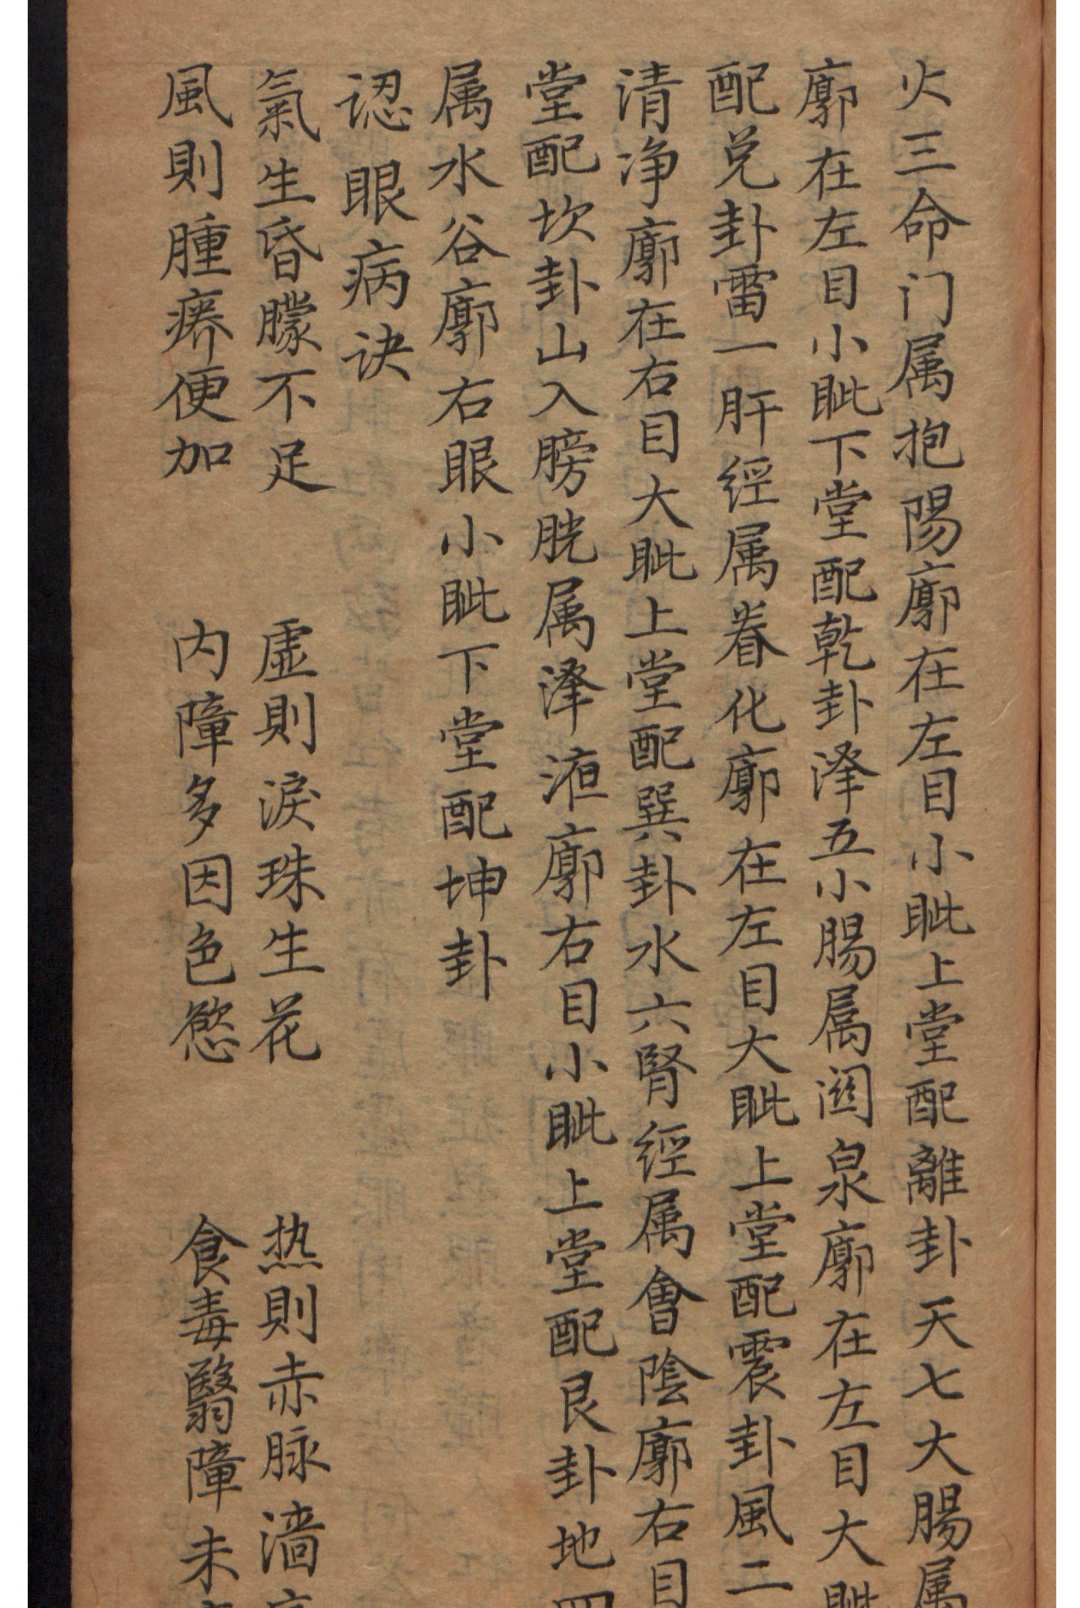 火三命门属抱陽廓在左目小眦上堂配離卦天七大腸属
廓在左目小眦下堂配乾卦泽五小腸属関泉廓在左目大眦
配兑卦雷一肝經属養化廓在左目大眦上堂配震卦風二
清净廓在右目大眦上堂配巽卦水六腎經属會陰廓右目
堂配坎卦山入膀胱属泽液廓右目小眦上堂配艮卦地四
属水谷廓右眼小眦下堂配坤卦
認眼病诀
氣生昏朦不足 虚則淚珠生花 热則赤脉濇
風則腫痒便加 内障多因色慾 食毒翳障未